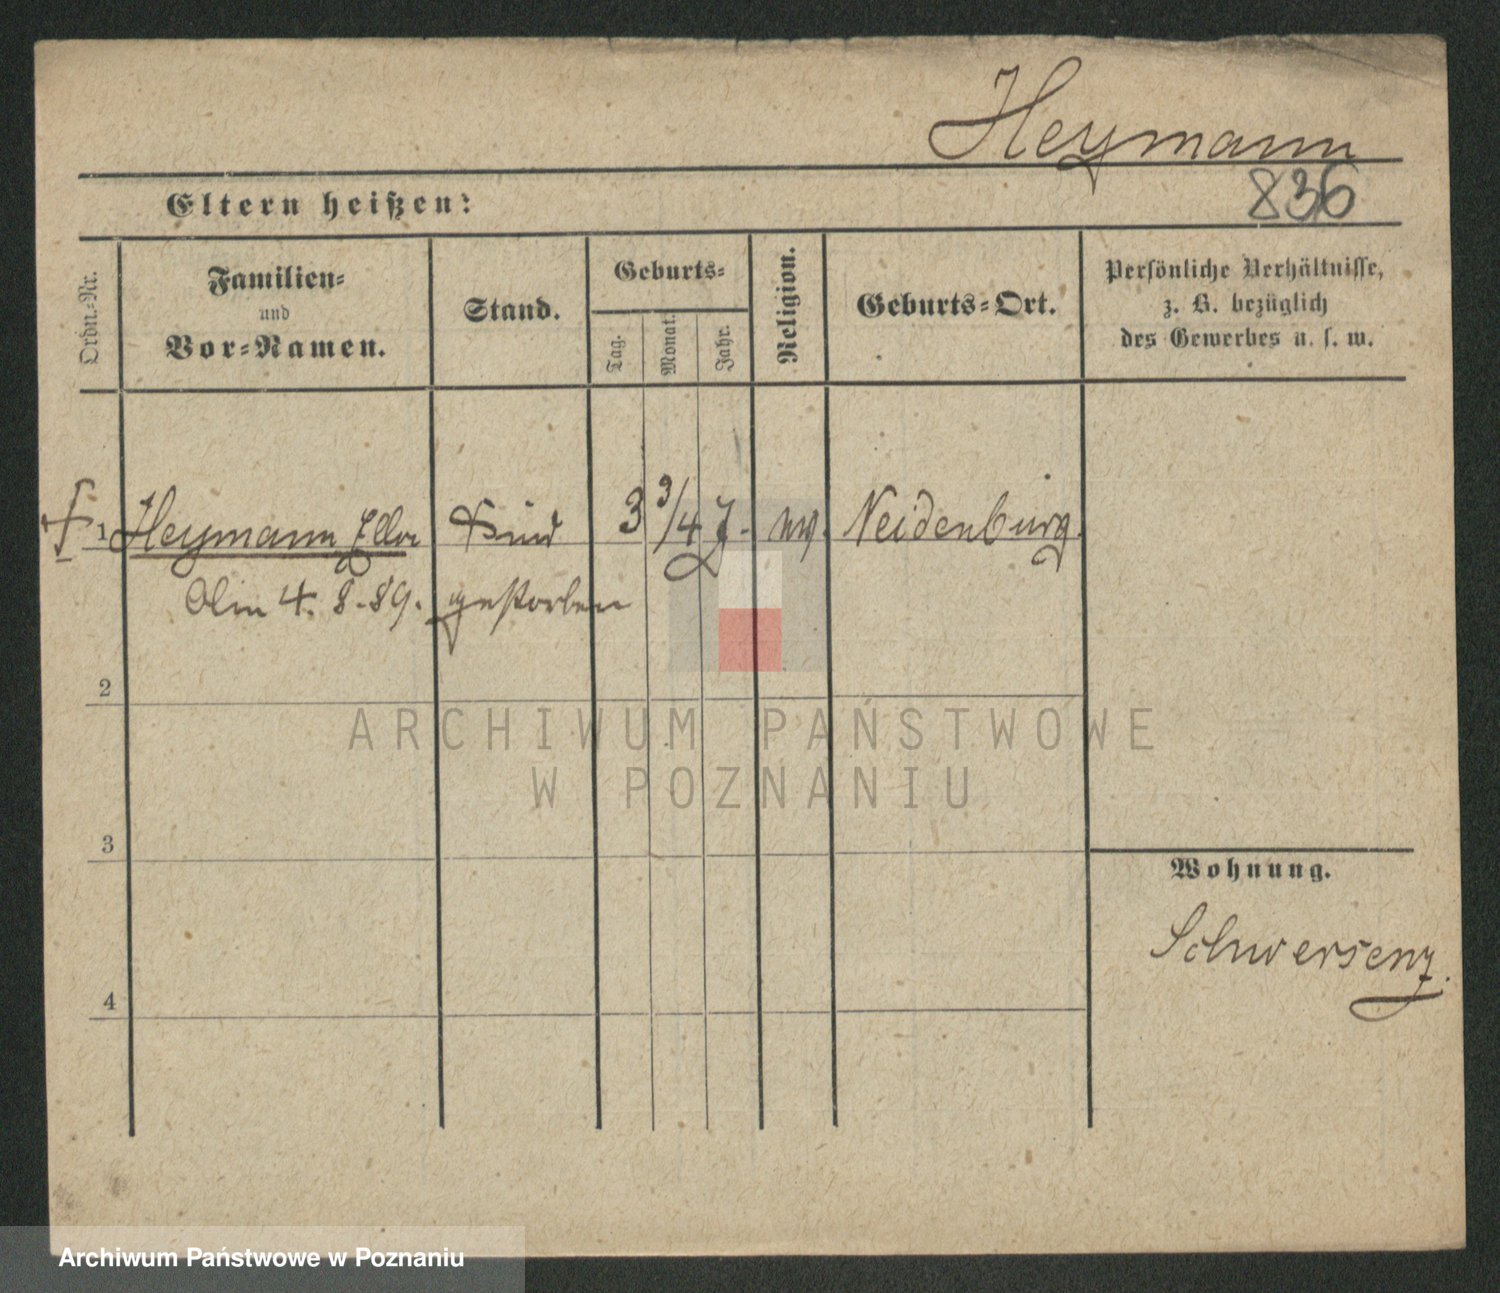 Heymann
836
Eltern heißen:
Ordn.-Nr.
Familien-
und
Vor-Namen.
Stand.
Geburts-
Tag.
Monat.
Jahr.
Religion.
Geburts-Ort.
Persönliche Verhältnisse,
z. B. bezüglich
des Gewerbes u. s. w.
† 1 Heymann Ella Kind 3 3/4 J. Neidenburg.
Am 4. 8. 89. gestorben
2
3
4
Wohnung.
Schwersenz.
ARCHIWUM PAŃSTWOWE
W POZNANIU
Archiwum Państwowe w Poznaniu